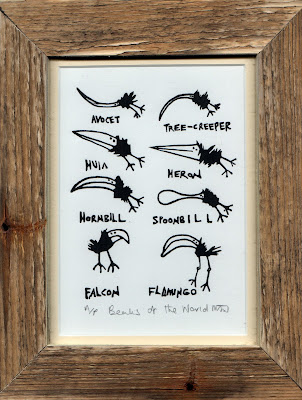 AVOCET
TREE-CREEPER
HUIA
HERON
HORNBILL
SPOONBILL
FALCON
FLAMINGO
A/P Beaks of the World